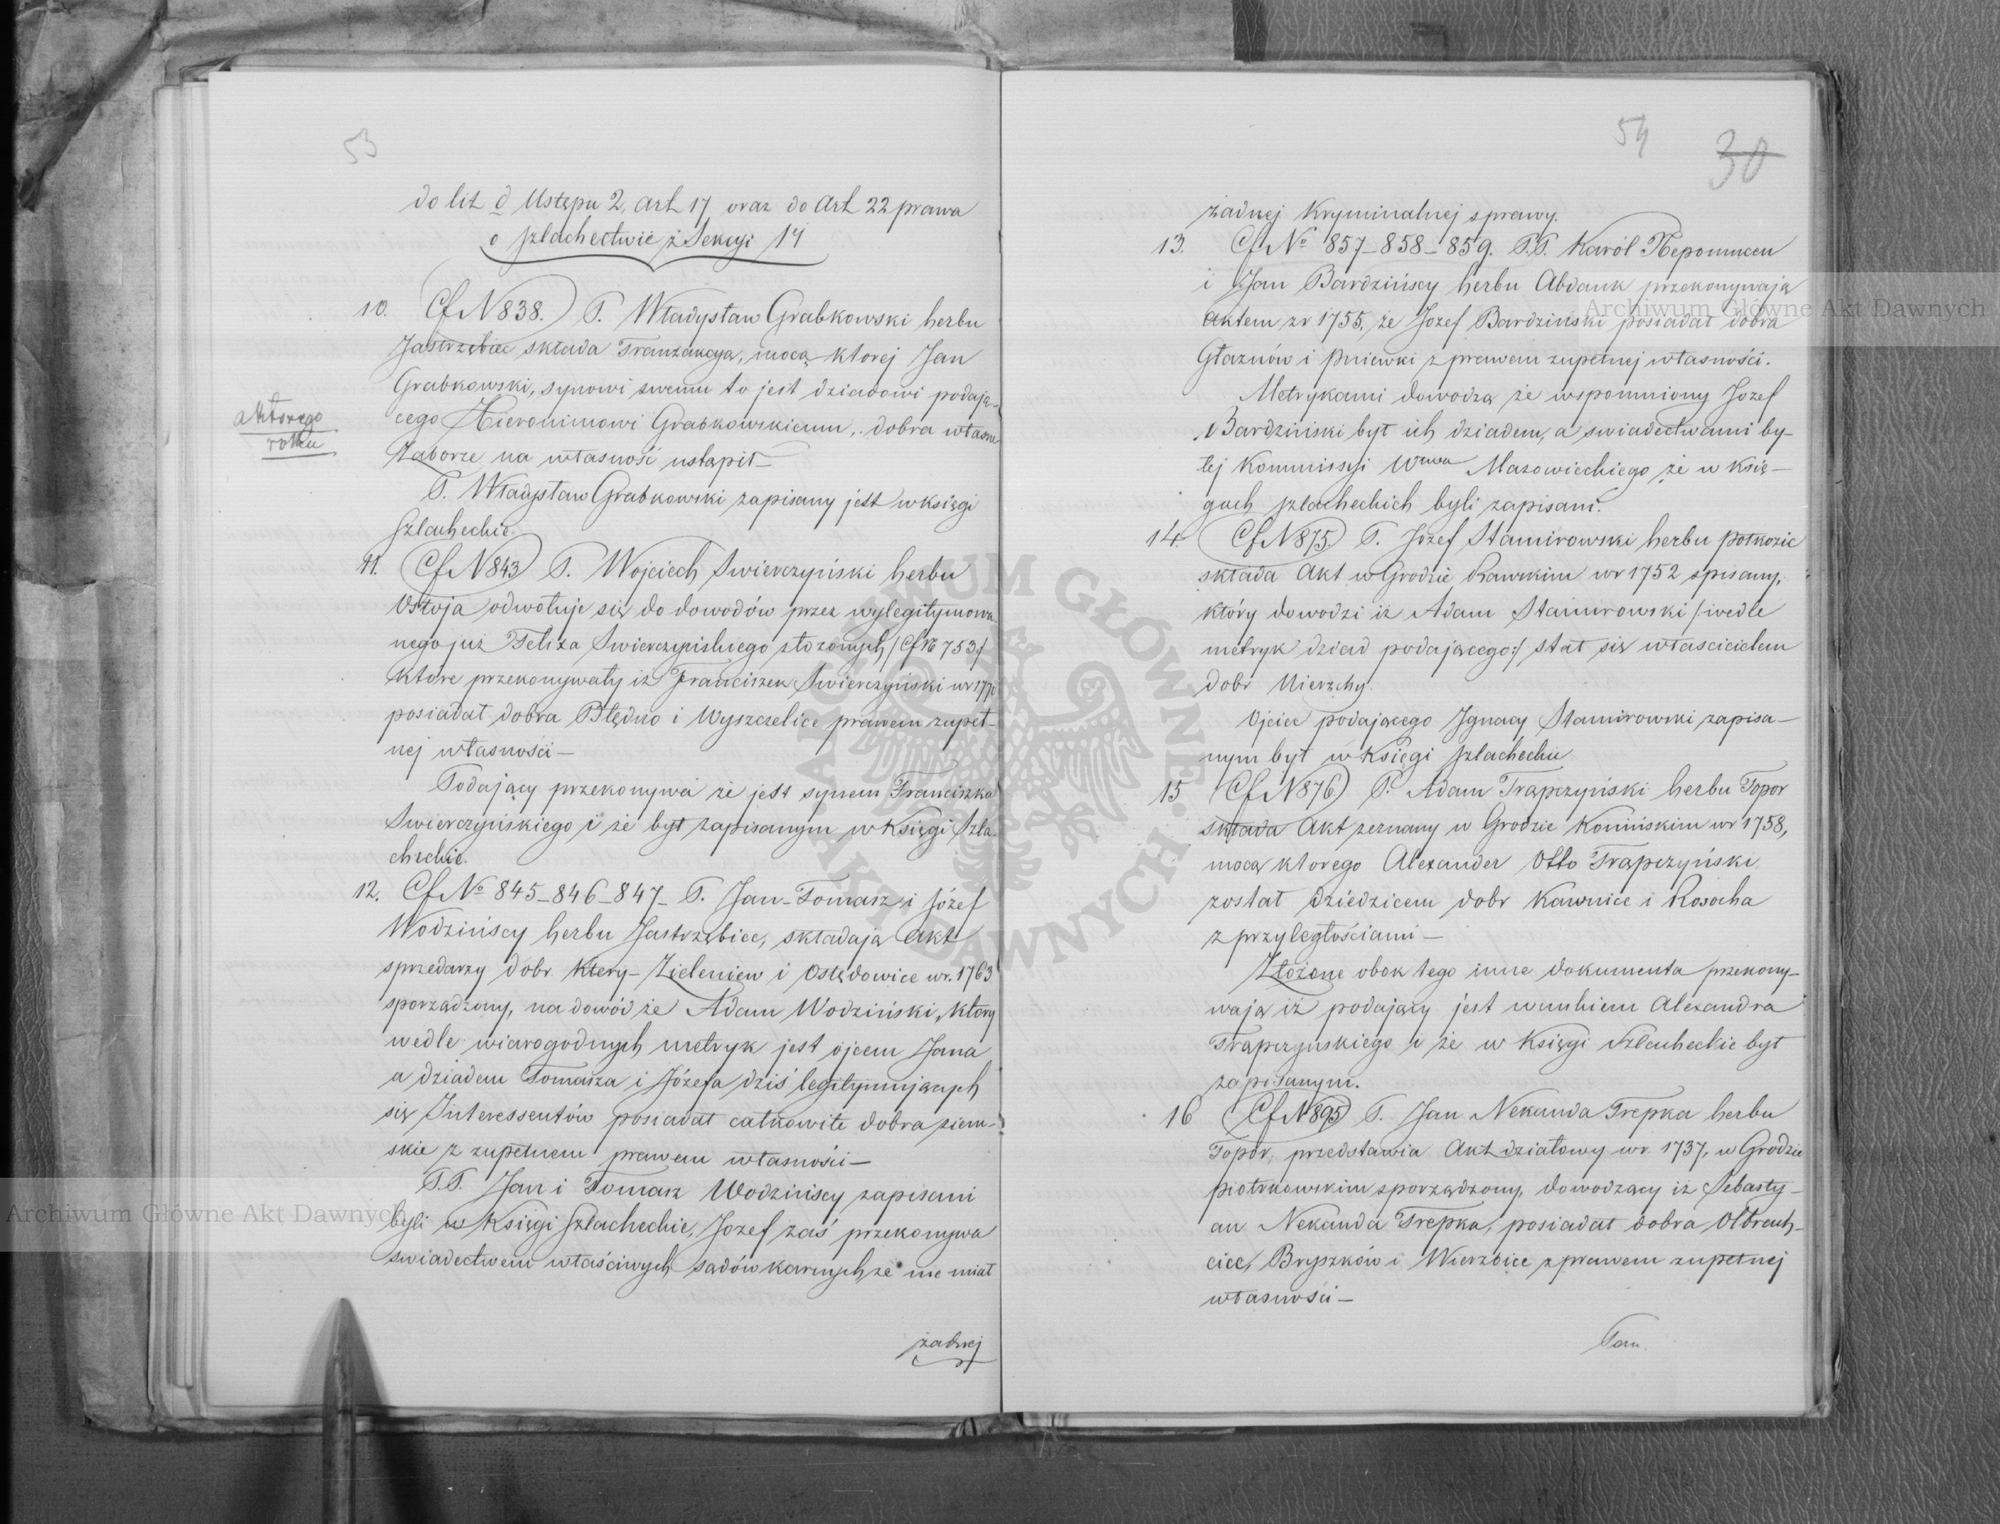 53
do lit d Ustępu 2, art 17, oraz do art 22 prawa
o szlachectwie z Sekcyi 14
10. Cf N 838. P. Władysław Grabkowski herbu
Jastrzębiec składa Tranzakcyą, mocą ktorej Jan
Grabkowski, synowi swemu to jest dziadowi podają-
cego Hieronimowi Grabkowskiemu, dobra własne
Zaborze na własność ustąpił—
a którego
roku
P. Władysław Grabkowski zapisany jest w księgi
szlacheckie.
11. Cf N 843 P. Wojciech Swierczyński herbu
Ostoja odwołuje się do dowodów przez wylegitymowa-
nego już Felixa Swierczyńskiego złożonych /Cf N 753/
które przekonywały iż Franciszek Swierczyński w r 177
posiadał dobra Błędno i Wyszczelice prawem zupeł-
nej własności—
Podający przekonywa że jest synem Franciszka
Swierczyńskiego i że był zapisanym w Księgi Szla-
checkie.
12. Cf No 845-846-847- P. Jan-Tomasz i Józef
Wodzińscy herbu Jastrzębiec, składają akt
sprzedarzy dobr Kłery-Zieleniew i Ostędowice w r. 1763
sporządzony, na dowód że Adam Wodziński, który
wedle wiarogodnych metryk jest ojcem Jana
a dziadem Tomasza i Józefa dziś legitymujących
się Interessentów posiadał całkowite dobra ziem-
skie z zupełnem prawem własności—
P.P. Jan i Tomasz Wodzińscy zapisani
byli w Księgi szlacheckie, Jozef zaś przekonywa
swiadectwem właściwych sądów karnych że nie miał
żadnej
54
30
żadnej Kryminalnej sprawy.
13. Cf No 857-858-859. P.P. Karól Nepomucen
i Jan Bardzińscy herbu Abdank przekonywają
aktem z r 1755, że Jozef Bardzinski posiadał dobra
Głaznów i Pniewki z prawem zupełnej własności.
Metrykami dowodzą że wspomniony Jozef
Bardziński był ich dziadem, a swiadectwami by-
łej Kommissyi Wwa Mazowieckiego że w Księ-
gach szlacheckich byli zapisani.
14. Cf N 875. P. Józef Stamirowski herbu Połkozic
składa Akt w Grodzie Rawskim w r 1752 spisany,
który dowodzi iż Adam Stamirowski /: wedle
metryk dziad podającego :/ stał się właścicielem
dobr Mierzchy.
Ojciec podającego Ignacy Stamirowski zapisa-
nym był w Księgi szlacheckie
15 Cf N 876) P. Adam Trąpczyński herbu Topor
składa Akt zeznany w Grodzie Konińskim w r 1758,
mocą ktorego Alexander Otto Trąpczyński
został dziédzicem dobr Kawnice i Rosocha
z przyległościami—
Złożone obok tego inne dokumenta przekony-
wają iż podający jest wnukiem Alexandra
Trąpczyńskiego i że w Księgi Szlacheckie był
zapisanym.
16 Cf N 895) P. Jan Nekanda Trepka herbu
Topór, przedstawia Akt działowy w r. 1737, w Grodzie
piotrkowskim sporządzony, dowodzący iż Sebasty-
an Nekanda Trepka, posiadał dobra Olbrach-
cice, Bryszków i Wierzbice z prawem zupełnej
własności—
Pan
Archiwum Główne Akt Dawnych
Archiwum Główne Akt Dawnych
ARCHIWUM GŁÓWNE AKT DAWNYCH